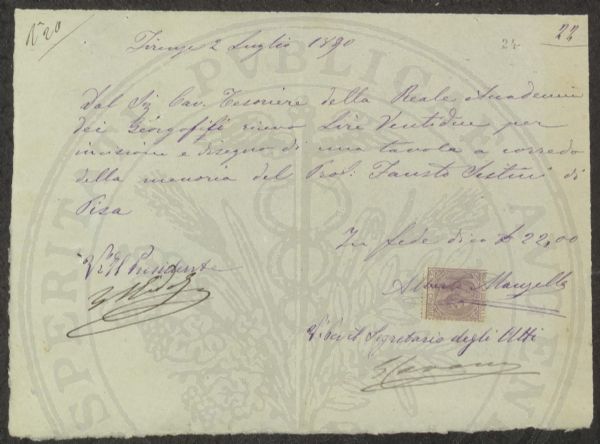 N° 20
22
24
Firenze 2 Luglio 1890
Dal Sig Cav. Tesoriere della Reale Accademia
dei Georgofili ricevo Lire Ventidue per
incisione e disegno di una tavola a corredo
della memoria del Prof: Fausto Sestini di
Pisa
In fede dico £ 22,00
V° Il Presidente
Alberto Manzella
V. Per il Segretario degli Atti